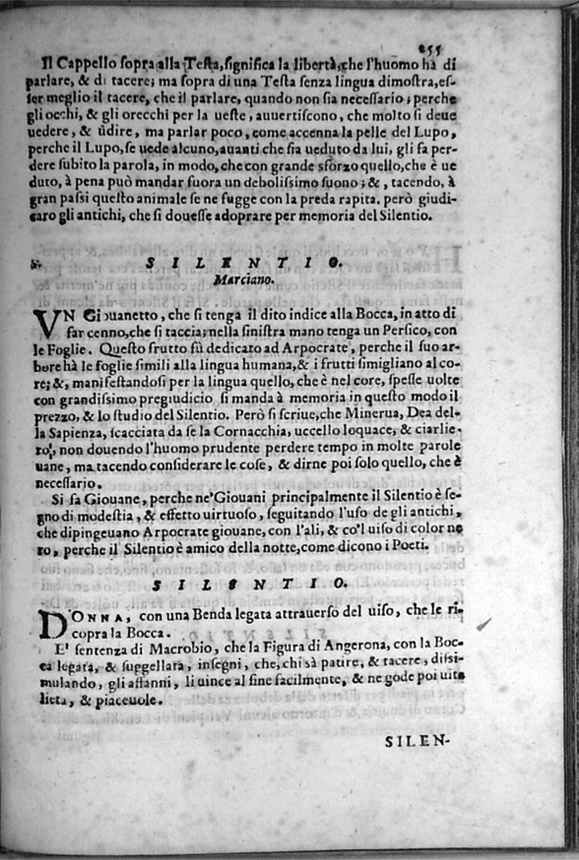 255
Il Cappello sopra alla Testa, significa la libertà, che l'huomo hà di
parlare, & di tacere; ma sopra di una Testa senza lingua dimostra, es-
ser meglio il tacere, che il parlare, quando non sia necessario; perche
gli occhi, & gli orecchi per la ueste, auuertiscono, che molto si deue
uedere, & ùdire, ma parlar poco, come accenna la pelle del Lupo,
perche il Lupo, se uede alcuno, auanti che sia ueduto da lui, gli fa per-
dere subito la parola, in modo, che con grande sforzo quello, che è ue
duto, à pena può mandar fuora un debolissimo suono; &, tacendo, à
gran passi questo animale se ne fugge con la preda rapita. però giudi-
caro gli antichi, che si douesse adoprare per memoria del Silentio.
SILENTIO.
Marciano.
VN Giouanetto, che si tenga il dito indice alla Bocca, in atto di
far cenno, che si taccia; nella sinistra mano tenga un Persico, con
le Foglie. Questo frutto fù dedicato ad Arpocrate, perche il suo ar-
bore hà le foglie simili alla lingua humana, & i frutti simigliano al co-
re; &, manifestandosi per la lingua quello, che è nel core, spesse uolte
con grandissimo pregiudicio si manda à memoria in questo modo il
prezzo, & lo studio del Silentio. Però si scriue, che Minerua, Dea del-
la Sapienza, scacciata da se la Cornacchia, uccello loquace, & ciarlie-
ro, non douendo l'huomo prudente perdere tempo in molte parole
uane, ma tacendo considerare le cose, & dirne poi solo quello, che è
necessario.
Si fa Giouane, perche ne' Giouani principalmente il Silentio è se-
gno di modestia, & effetto virtuoso, seguitando l'uso de gli antichi,
che dipingeuano Arpocrate giouane, con l'ali, & co'l uiso di color ne
ro, perche il Silentio è amico della notte, come dicono i Poeti.
SILENTIO.
DONNA, con una Benda legata attrauerso del uiso, che le ri-
copra la Bocca.
E' sentenza di Macrobio, che la Figura di Angerona, con la Boc-
ca legata, & suggellata, insegni, che, chi sà patire, & tacere, dissi-
mulando, gli affanni, li uince al fine facilmente, & ne gode poi uita
lieta, & piaceuole.
SILEN-